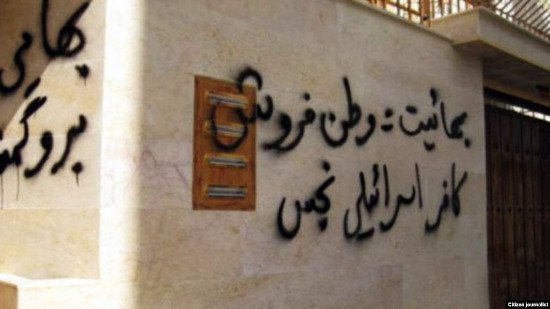 بهائیت = وطن فروش
کافر اسرائیلی نجس
بهایی
برو گم
Citizen journalist